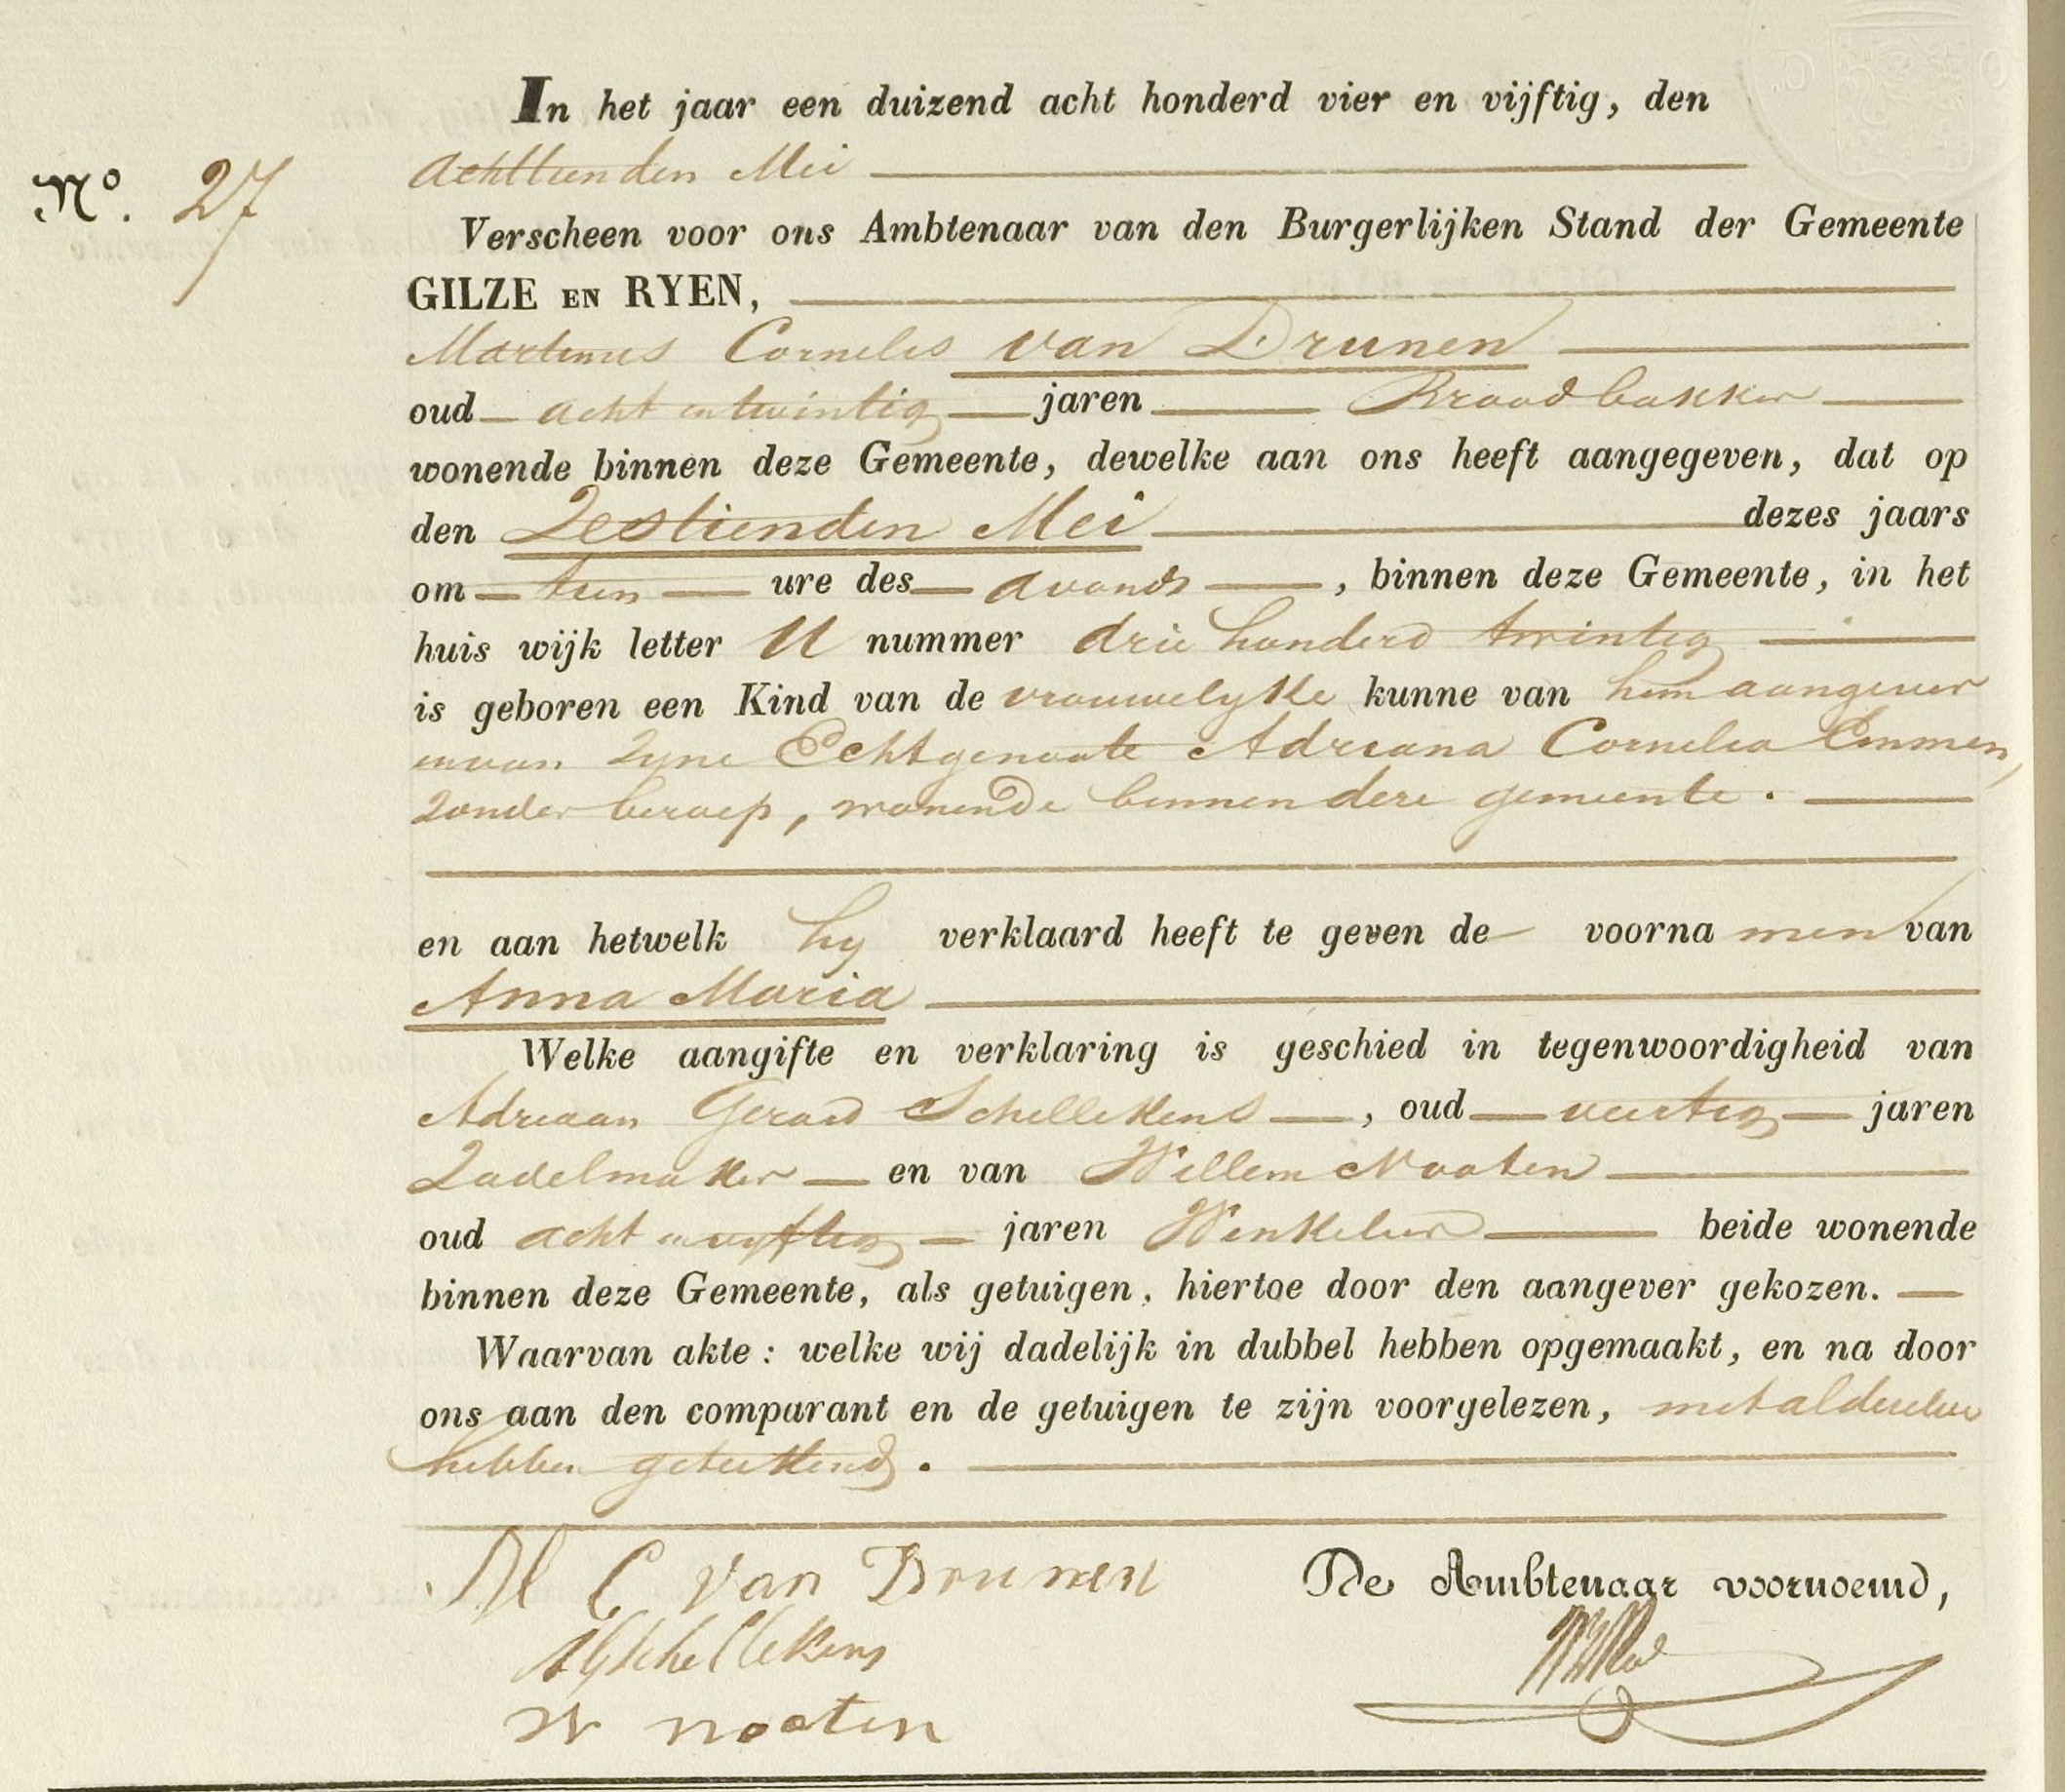 In het jaar een duizend acht honderd vier en vijftig, den
No. 27
Achttienden Mei
Verscheen voor ons Ambtenaar van den Burgerlijken Stand der Gemeente
GILZE EN RYEN,
Martinus Cornelis van Drunen
oud acht en twintig jaren Broodbakker
wonende binnen deze Gemeente, dewelke aan ons heeft aangegeven, dat op
den Zestienden Mei dezes jaars
om tien ure des avonds, binnen deze Gemeente, in het
huis wijk letter U nummer drie honderd twintig
is geboren een Kind van de vrouwelyke kunne van hem aangever
en van zyne Echtgenoote Adriana Cornelia Emmen,
zonder beroep, wonende binnen deze gemeente.
en aan hetwelk hy verklaard heeft te geven de voorna men van
Anna Maria
Welke aangifte en verklaring is geschied in tegenwoordigheid van
Adriaan Gerard Schellekens, oud veertig jaren
Zadelmaker en van Willem Nooten
oud acht en vyftig jaren Winkelier beide wonende
binnen deze Gemeente, als getuigen, hiertoe door den aangever gekozen.
Waarvan akte: welke wij dadelijk in dubbel hebben opgemaakt, en na door
ons aan den comparant en de getuigen te zijn voorgelezen, met aldezelve
hebben geteekend.
M C van Drunen De Ambtenaar voornoemd,
AGSchellekens
W nooten